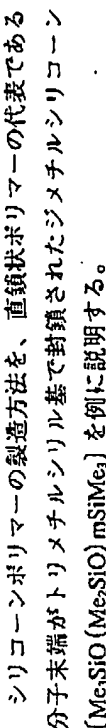 シリコーンポリマーの製造方法を、直鎖状ポリマーの代表である
分子末端がトリメチルシリル基で封鎖されたジメチルシリコーン
[Me₃SiO(Me₂SiO)mSiMe₃] を例に説明する。